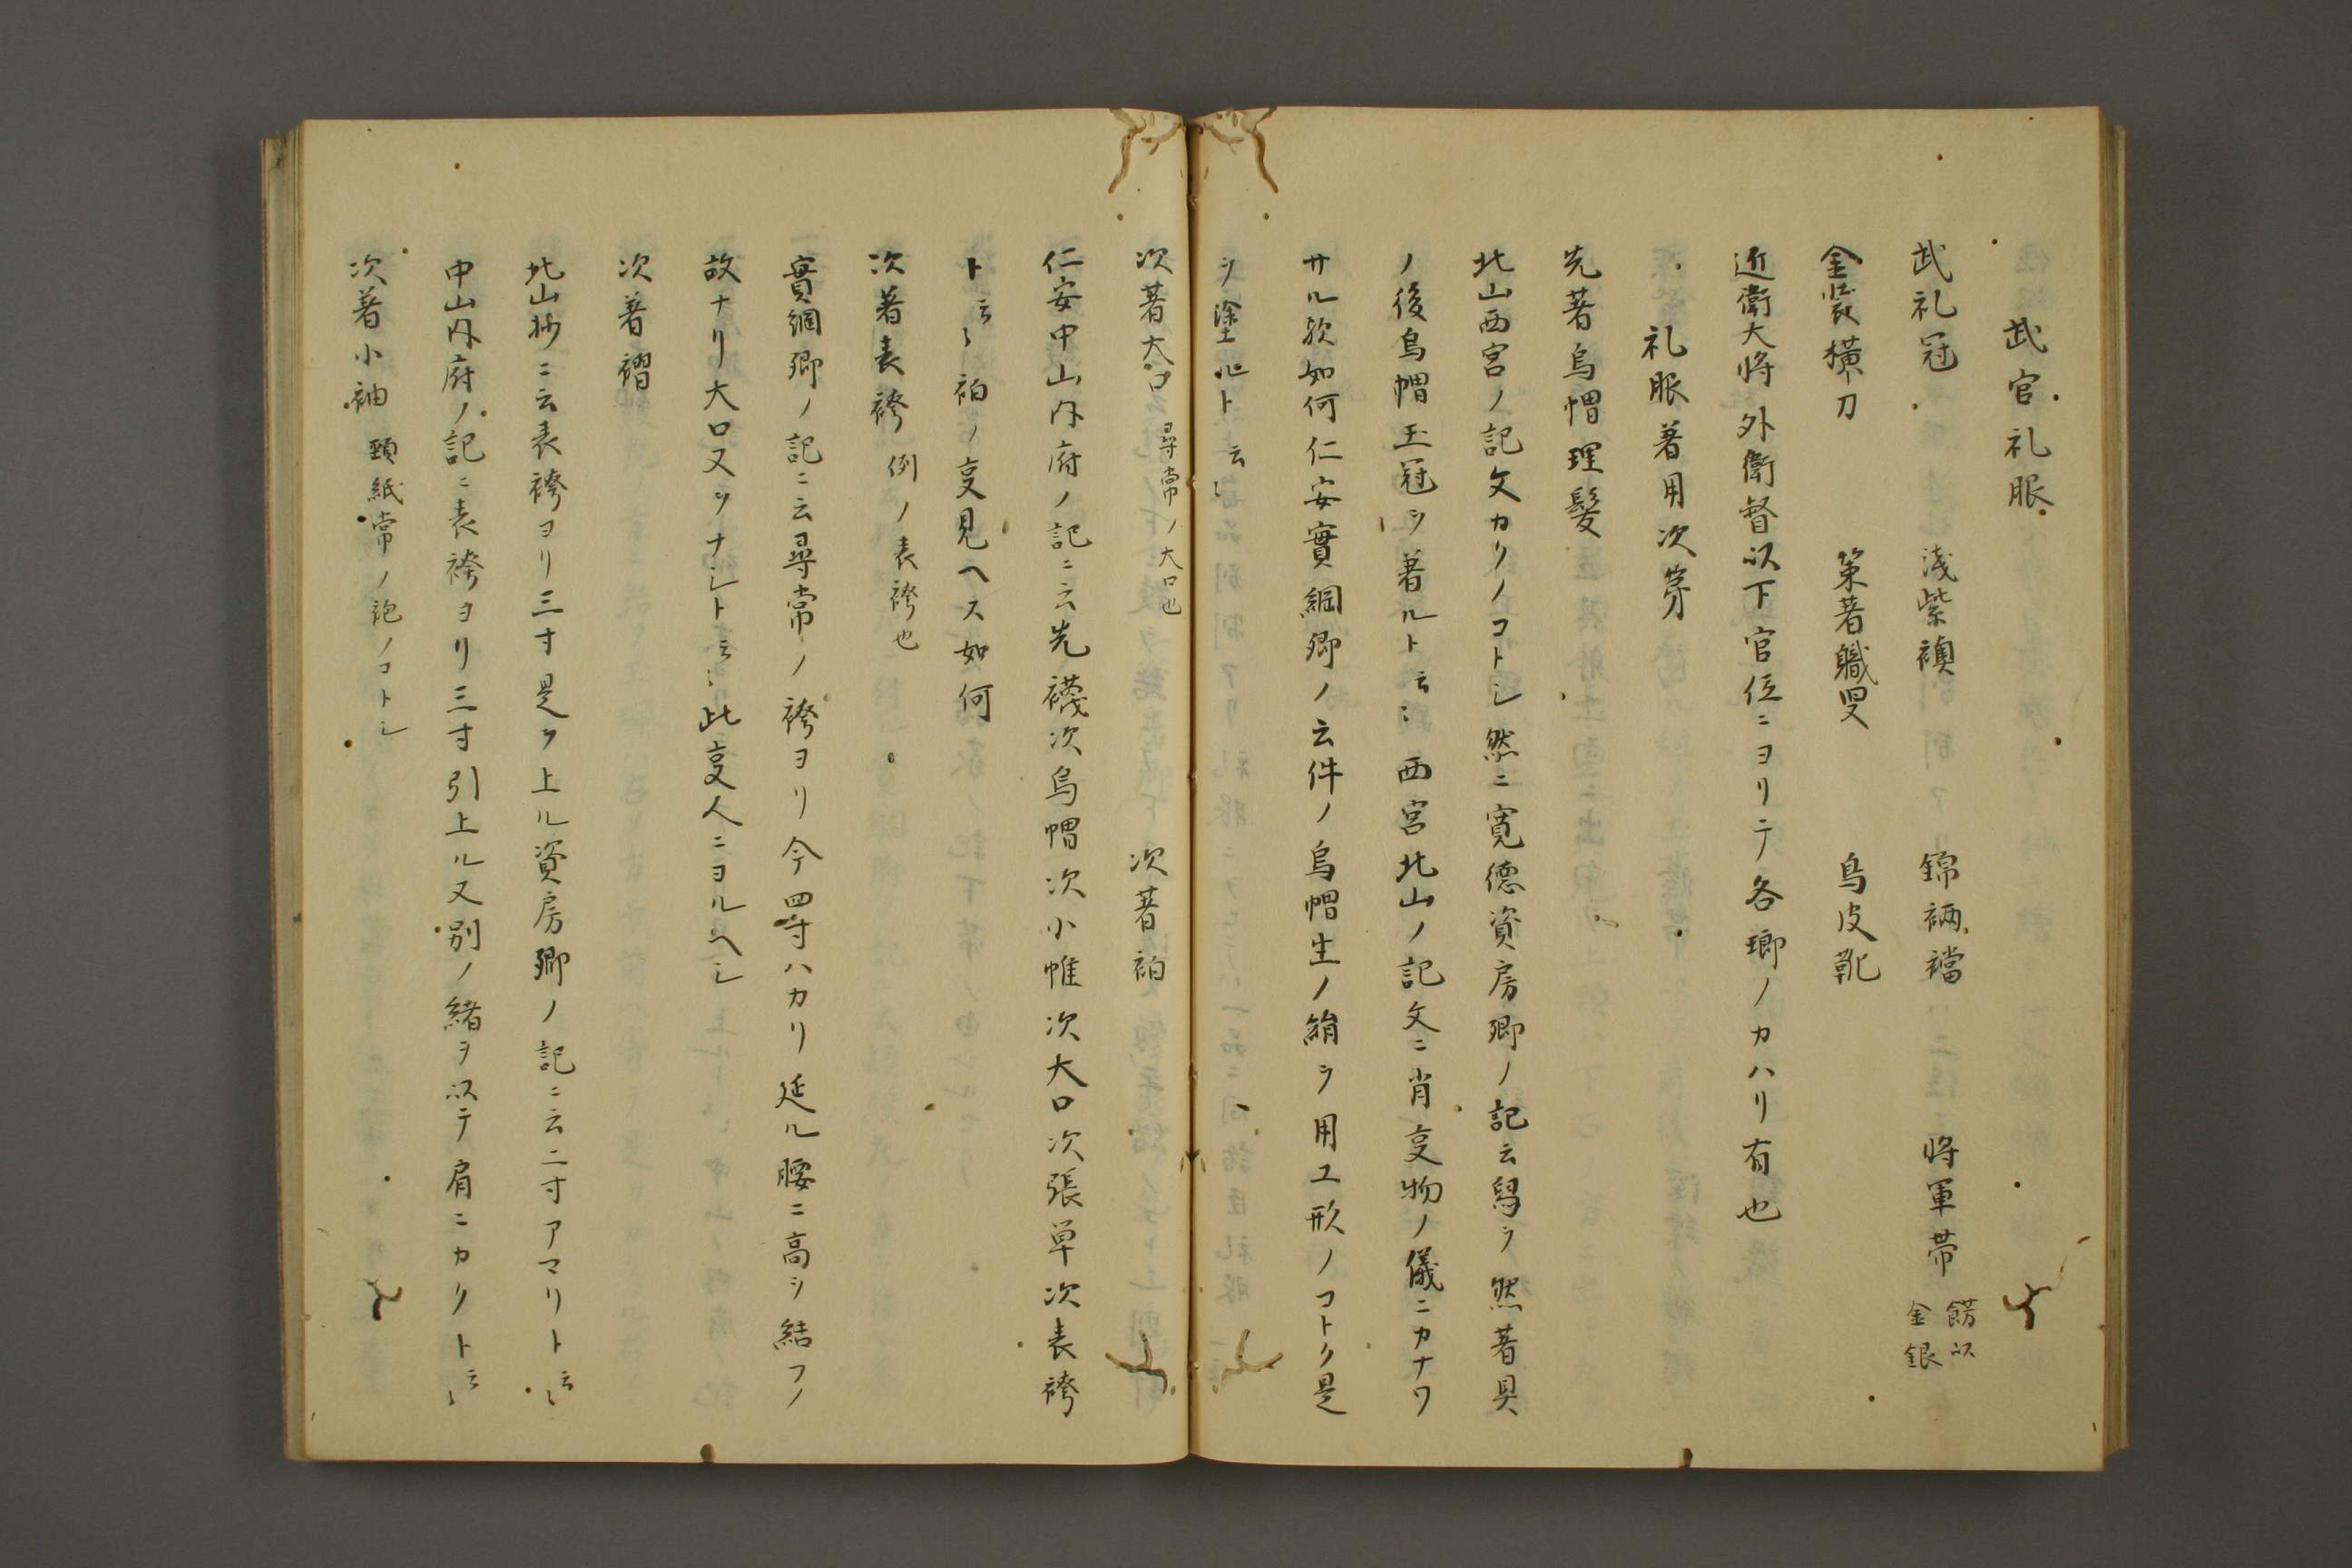 武官礼服
武礼冠 浅紫襖 錦裲襠 将軍帯 餝以金銀
金装横刀 策著幟殳 烏皮靴
近衛大将外衛督以下官位ニヨリテ各瑯ノカハリ有也
礼服著用次第
先著烏帽理髪
北山西宮ノ記文カクノコトシ然ニ寛徳資房卿ノ記云舄ヲ然著具
ノ後烏帽玉冠ヲ著ルト云〻西宮北山ノ記文ニ肖㕝物ノ儀ニカナワ
サル欤如何仁安實綱卿ノ云件ノ烏帽生ノ絹ヲ用ユ形ノコトク是
ヲ塗ルト云〻
次著大口 尋常ノ大口也 次著袙
仁安中山内府ノ記ニ云先襪次烏帽次小帷次大口次張単次表袴
ト云〻袙ノ㕝見ヘス如何
次著表袴 例ノ表袴也
實綱卿ノ記ニ云尋常ノ袴ヨリ今四寸ハカリ延ル腰ニ高ヲ結フノ
故ナリ大口又ツナシト云〻此㕝人ニヨルヘシ
次著褶
北山抄ニ云表袴ヨリ三寸是ヲ上ル資房卿ノ記ニ云二寸アマリト云〻
中山内府ノ記ニ表袴ヨリ三寸引上ル又別ノ緒ヲ以テ肩ニカクト云〻
次著小袖 頸紙常ノ袍ノコトシ